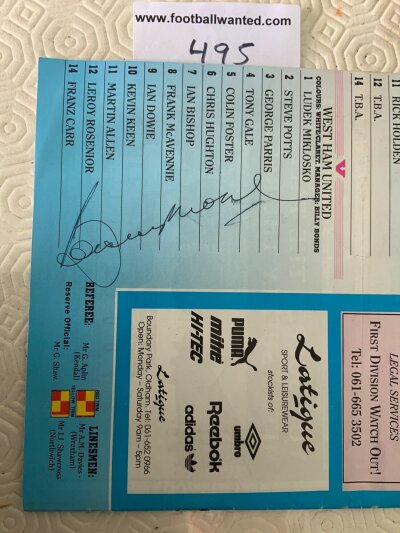 www.footballwanted.com
495
11 RICK HOLDEN
12 T.B.A.
14 T.B.A.
WEST HAM UNITED
COLOURS: WHITE/CLARET. MANAGER: BILLY BONDS
1 LUDEK MIKLOSKO
2 STEVE POTTS
3 GEORGE PARRIS
4 TONY GALE
5 COLIN FOSTER
6 CHRIS HUGHTON
7 IAN BISHOP
8 FRANK McAVENNIE
9 IAN DOWIE
10 KEVIN KEEN
11 MARTIN ALLEN
12 LEROY ROSENIOR
14 FRANZ CARR
REFEREE:
Mr G. Aplin
(Kendal)
Reserve Official:
Mr G. Shaw.
RED TRIM
YELLOW TRIM
LINESMEN:
Mr A.M. Davies -
(Wrexham)
Mr J.J. Shawcross
(Northwich)
LEGAL SERVICES
FIRST DIVISION WATCH OUT!
Tel: 061-665 3502
Latique
SPORT & LEISUREWEAR
stockists of:
PUMA
umbro
mitre
Reebok
HI-TEC
adidas
Latique
Boundary Park, Oldham. Tel: 061-652 0966
Open: Monday - Saturday 9am - 5pm